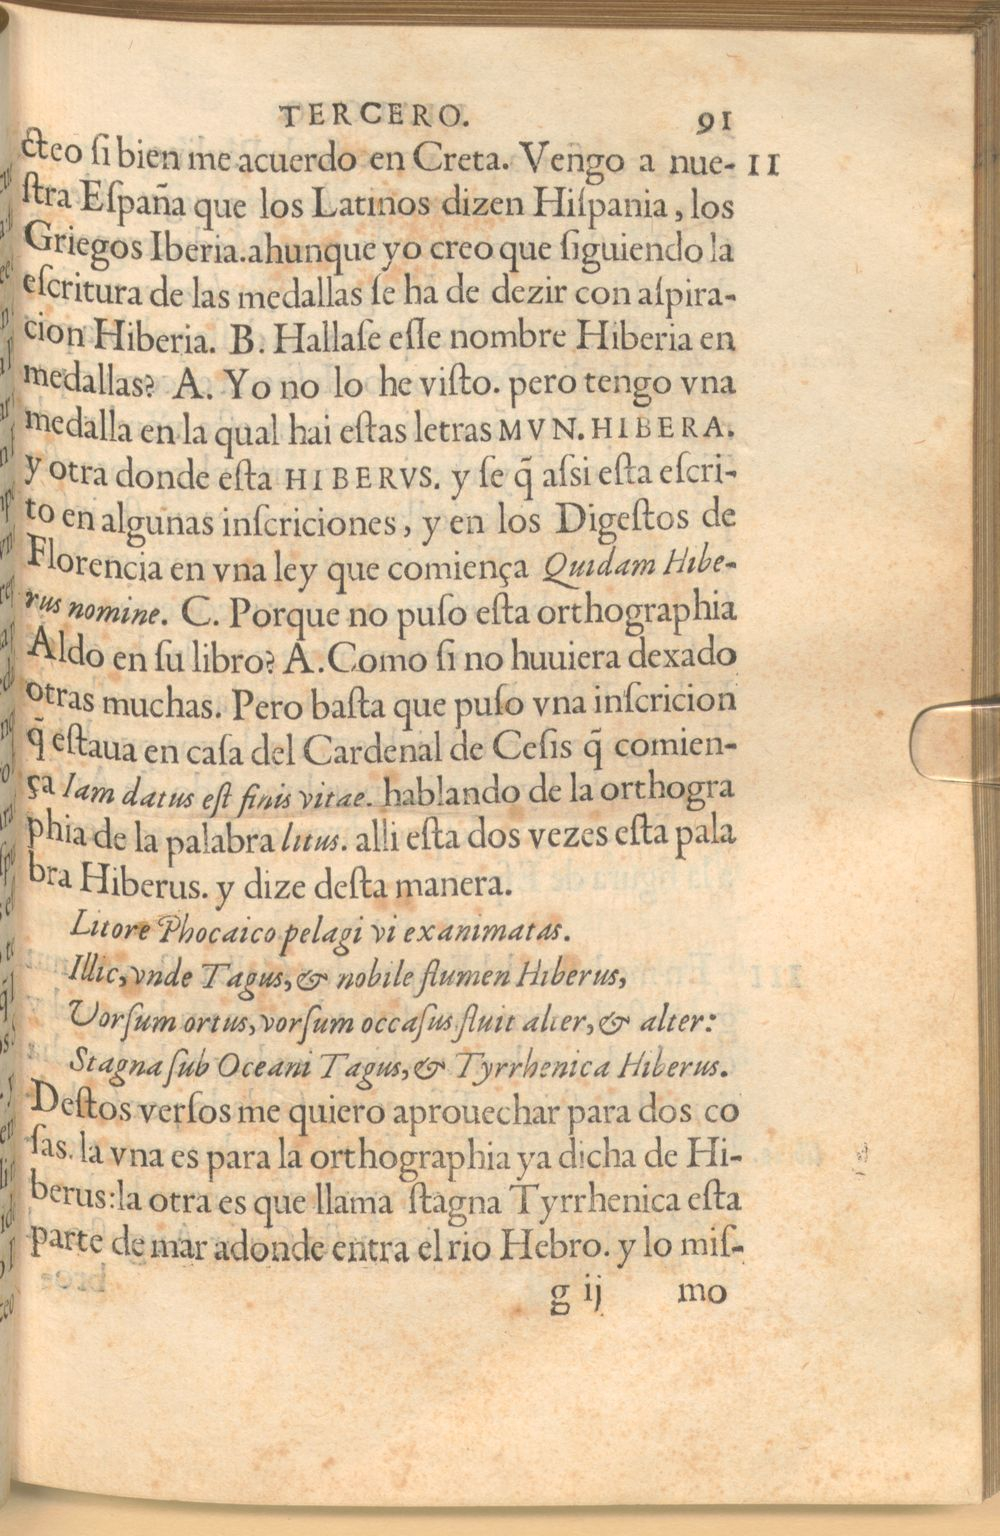 TERCERO. 91
cteo ſi bien me acuerdo en Creta. Vengo a nue- 11
ſtra Eſpaña que los Latinos dizen Hiſpania, los
Griegos Iberia.ahunque yo creo que ſiguiendo la
eſcritura de las medallas ſe ha de dezir con aſpira-
cion Hiberia. B. Hallaſe eſſe nombre Hiberia en
medallas? A. Yo no lo he viſto. pero tengo vna
medalla en la qual hai eſtas letras MVN. HIBERA.
y otra donde eſta HIBERVS. y ſe q̃ aſsi eſta eſcri-
to en algunas inſcriciones, y en los Digeſtos de
Florencia en vna ley que comiença Quidam Hibe-
rus nomine. C. Porque no puſo eſta orthographia
Aldo en ſu libro? A. Como ſi no huuiera dexado
otras muchas. Pero baſta que puſo vna inſcricion
q̃ eſtaua en caſa del Cardenal de Ceſis q̃ comien-
ça Iam datus eſt finis vitae. hablando de la orthogra
phia de la palabra litus. alli eſta dos vezes eſta pala
bra Hiberus. y dize deſta manera.
Litore Phocaico pelagi vi exanimatas.
Illic, vnde Tagus, & nobile flumen Hiberus,
Vorſum ortus, vorſum occaſus fluit alter, & alter:
Stagna ſub Oceani Tagus, & Tyrrhenica Hiberus.
Deſtos verſos me quiero aprouechar para dos co
ſas. la vna es para la orthographia ya dicha de Hi-
berus: la otra es que llama ſtagna Tyrrhenica eſta
parte de mar adonde entra el rio Hebro. y lo miſ-
g ij mo